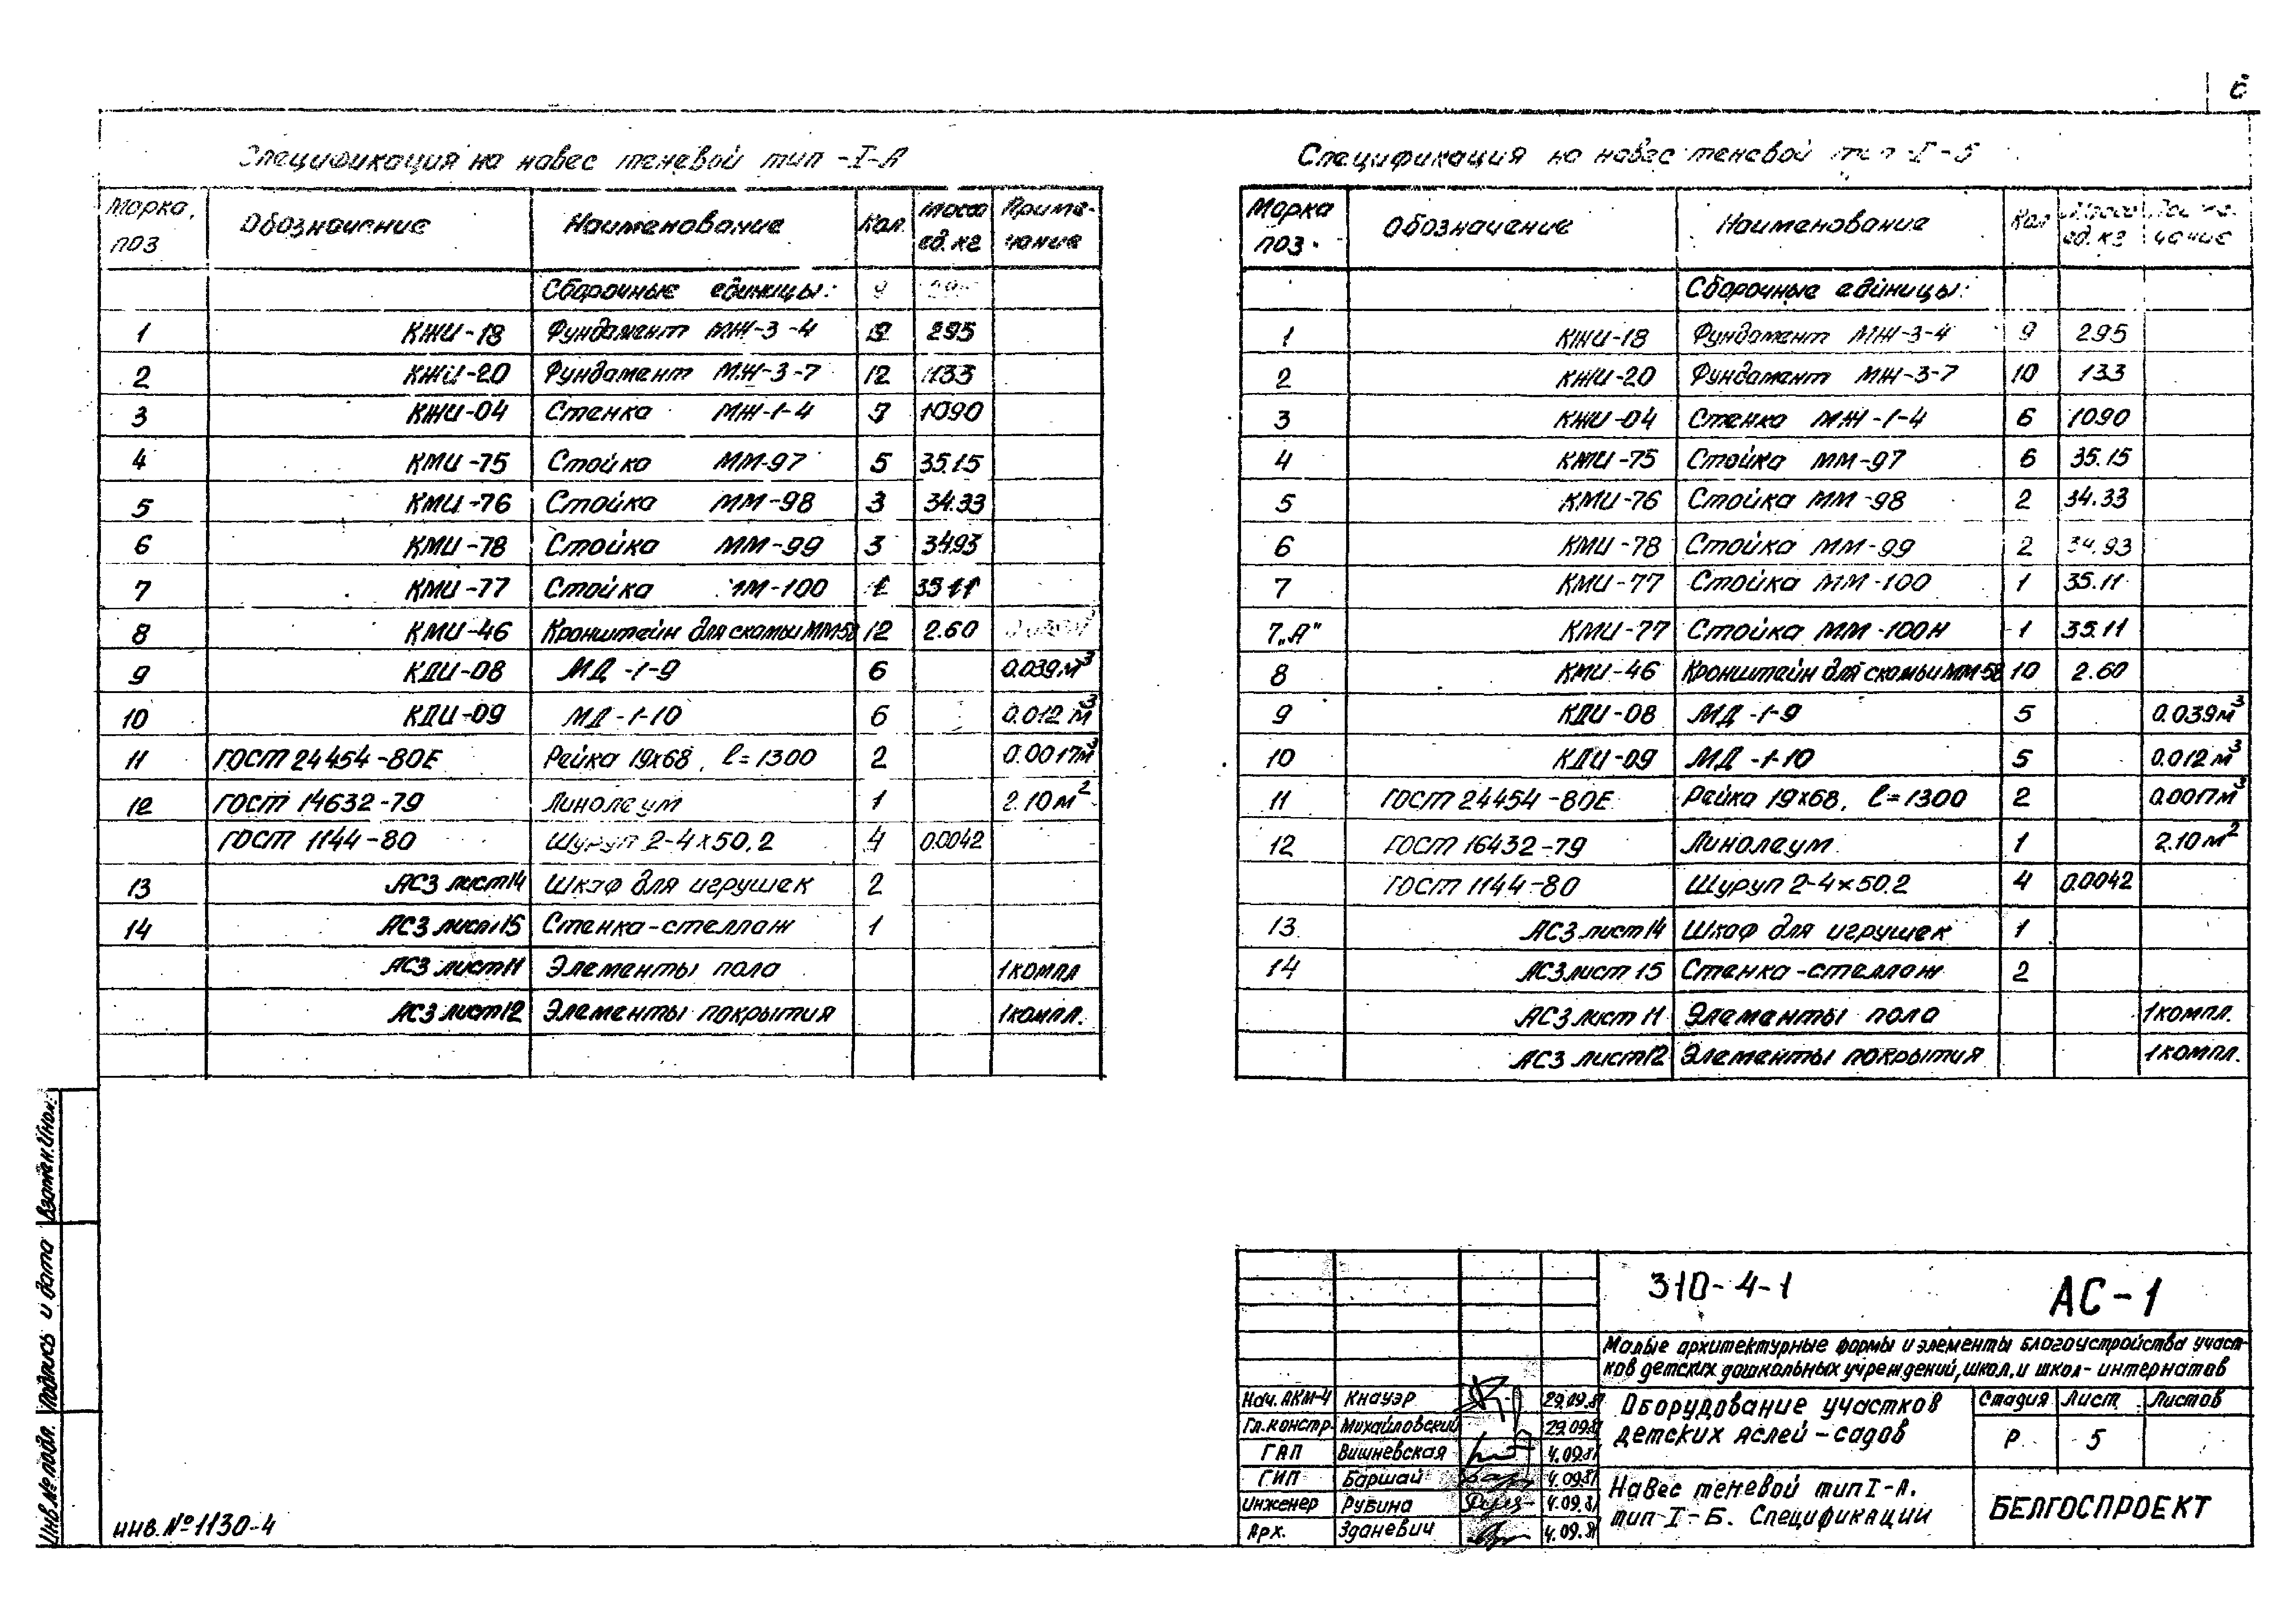 6
Спецификация на навес теневой тип -I-А
Марка, поз Обозначение Наименование Кол. Масса ед. кг Приме-чание
Сборочные единицы: 9 295
1 КЖИ-18 Фундамент МЖ-3-4 9 295
2 КЖИ-20 Фундамент МЖ-3-7 12 133
3 КЖИ-04 Стенка МЖ-1-4 1090
4 КМИ-75 Стойка ММ-97 5 35.15
5 КМИ-76 Стойка ММ-98 3 34.33
6 КМИ-78 Стойка ММ-99 3 34.93
7 КМИ-77 Стойка ММ-100 1 35.11
8 КМИ-46 Кронштейн для скамьи ММ58 12 2.60
9 КДИ-08 МД-1-9 6 0.039м³
10 КДИ-09 МД-1-10 6 0.012м³
11 ГОСТ 24454-80Е Рейка 19х68, ℓ=1300 2 0.0017м³
12 ГОСТ 14632-79 Линолеум 1 2.10м²
ГОСТ 1144-80 Шуруп 2-4х50.2 4 0.0042
13 АС3 лист14 Шкаф для игрушек 2
14 АС3 лист15 Стенка-стеллаж 1
АС3 лист11 Элементы пола 1компл
АС3 лист12 Элементы покрытия 1компл.
Спецификация на навес теневой тип -I-Б
Марка поз. Обозначение Наименование Кол Масса ед. кг Приме-чание
Сборочные единицы:
1 КЖИ-18 Фундамент МЖ-3-4 9 295
2 КЖИ-20 Фундамент МЖ-3-7 10 133
3 КЖИ-04 Стенка МЖ-1-4 6 1090
4 КМИ-75 Стойка ММ-97 6 35.15
5 КМИ-76 Стойка ММ-98 2 34.33
6 КМИ-78 Стойка ММ-99 2 34.93
7 КМИ-77 Стойка ММ-100 1 35.11
7„А" КМИ-77 Стойка ММ-100Н 1 35.11
8 КМИ-46 Кронштейн для скамьи ММ-58 10 2.60
9 КДИ-08 МД-1-9 5 0.039м³
10 КДИ-09 МД-1-10 5 0.012м³
11 ГОСТ 24454-80Е Рейка 19х68, ℓ=1300 2 0.0017м³
12 ГОСТ 16432-79 Линолеум 1 2.10м²
ГОСТ 1144-80 Шуруп 2-4х50.2 4 0.0042
13 АС3 лист14 Шкаф для игрушек 1
14 АС3 лист 15 Стенка-стеллаж 2
АС3 лист 11 Элементы пола 1компл.
АС3 лист12 Элементы покрытия 1компл.
Инв.№ подл. Подпись и дата Взамен.Инв.
инв.№1130-4
310-4-1 АС-1
Малые архитектурные формы и элементы благоустройства участ-
ков детских дошкольных учреждений, школ, и школ-интернатов
Нач. АКМ-4 Кнауэр 29.09.81
Гл.констр. Михайловский 29.09.81
ГАП Вишневская 4.09.81
ГИП Баршай 4.09.81
Инженер Рубина 4.09.81
Арх. Зданевич 4.09.81
Оборудование участков
детских яслей-садов
Стадия Лист Листов
Р 5
Навес теневой тип I-А.
тип-I-Б. Спецификации
БЕЛГОСПРОЕКТ